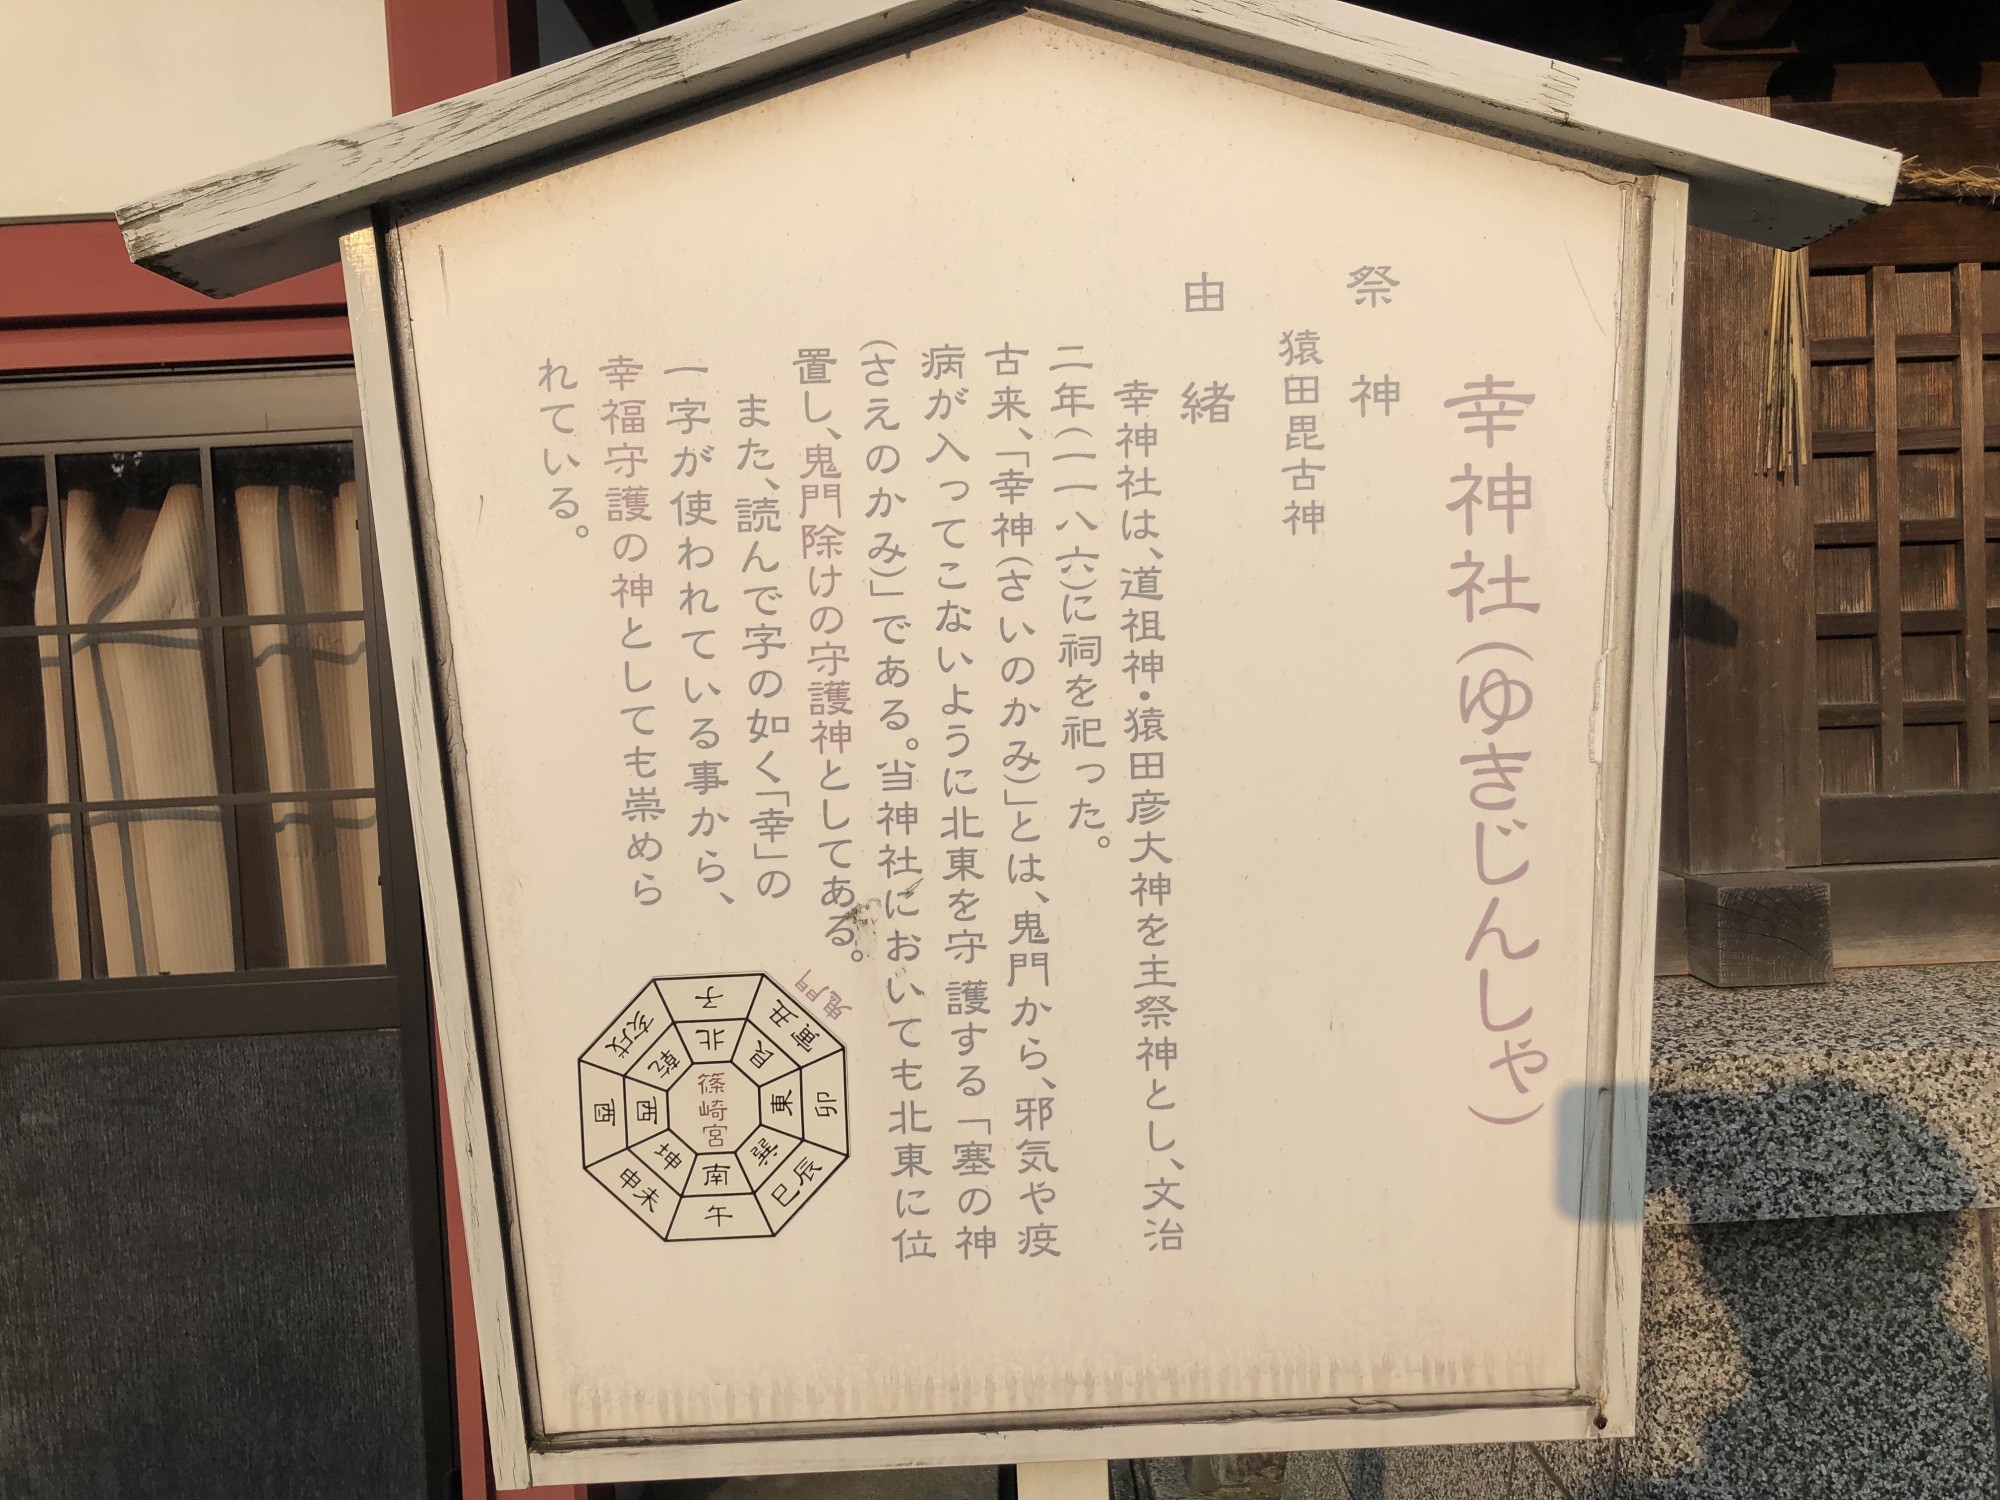 幸神社(ゆきじんしゃ)
祭神
猿田毘古神
由緒
幸神社は、道祖神・猿田彦大神を主祭神とし、文治
二年(一一八六)に祠を祀った。
古来、「幸神(さいのかみ)」とは、鬼門から、邪気や疫
病が入ってこないように北東を守護する「塞の神
(さえのかみ)」である。当神社においても北東に位
置し、鬼門除けの守護神としてある。
また、読んで字の如く「幸」の
一字が使われている事から、
幸福守護の神としても崇めら
れている。
鬼門
子
丑寅
卯
辰巳
午
未申
酉
戌亥
北
艮
東
巽
南
坤
西
乾
篠崎宮